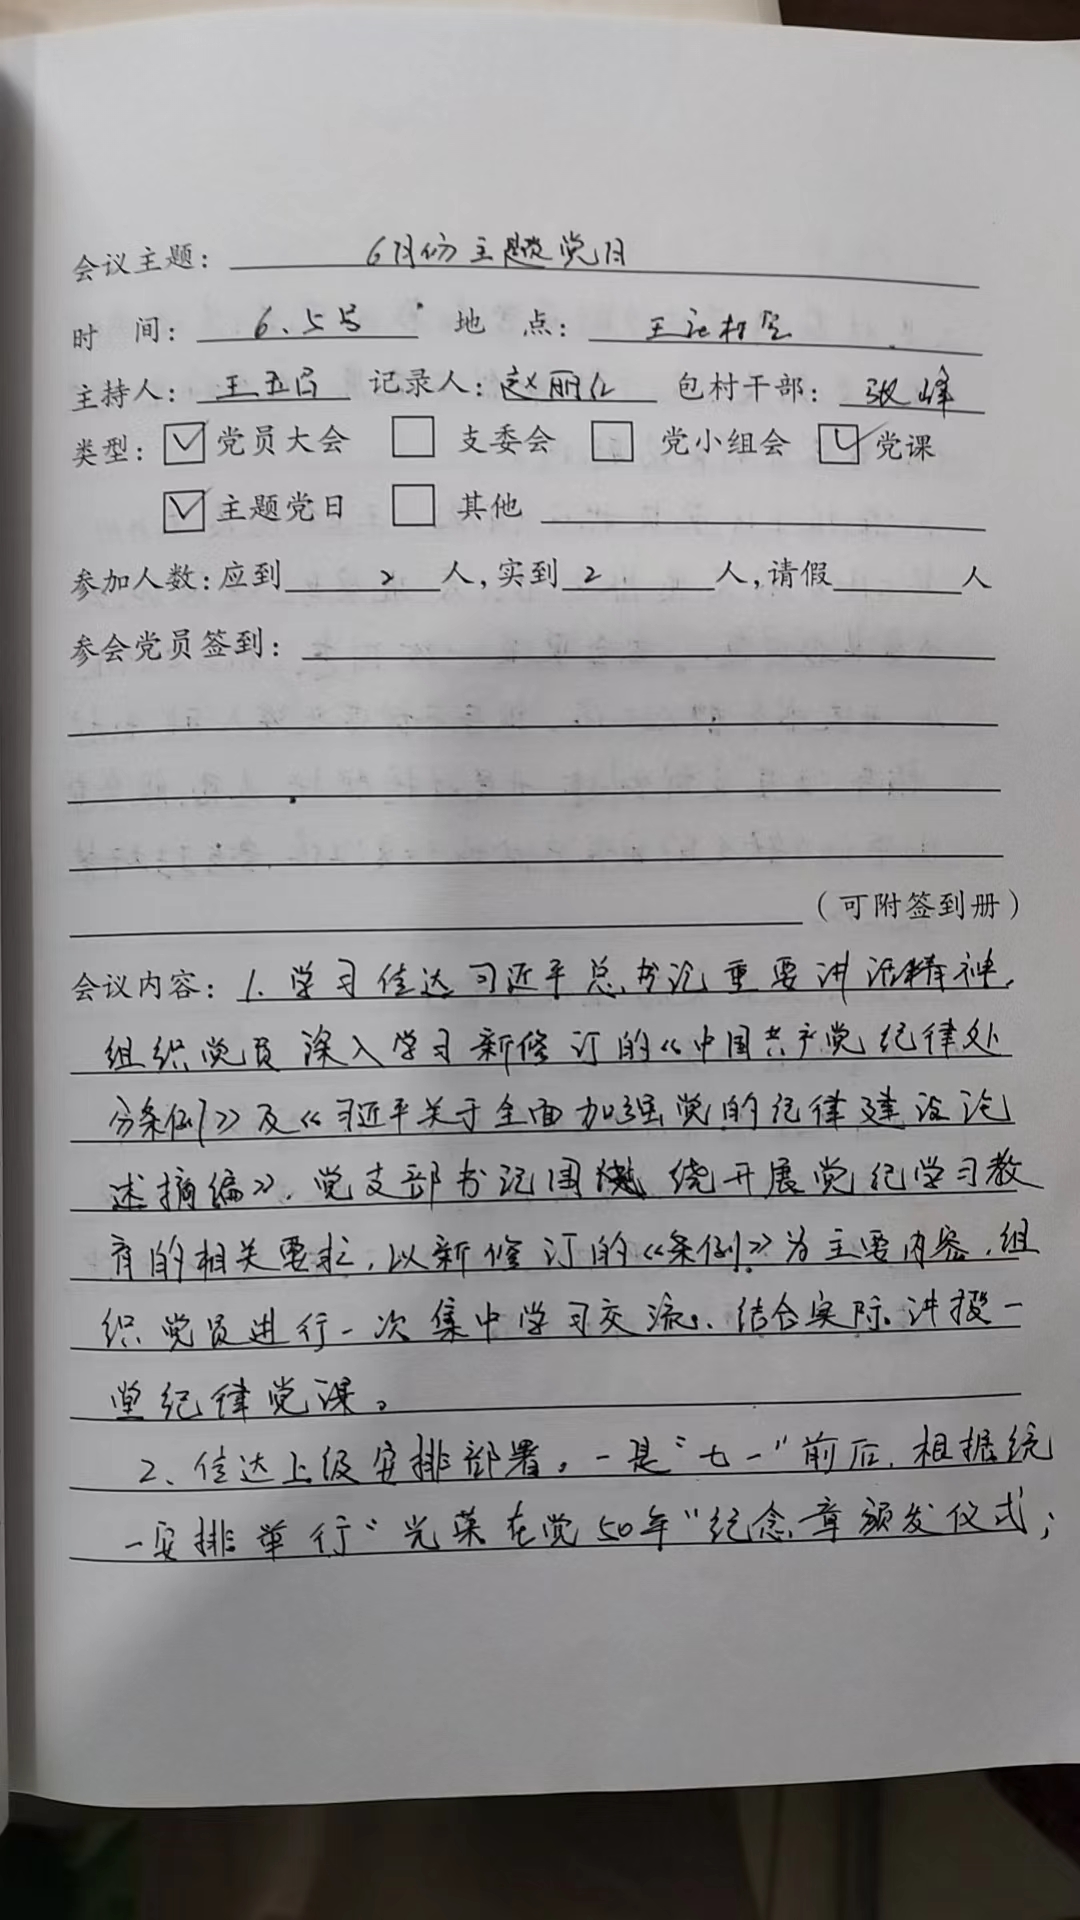 会议主题： 6月份主题党日
时 间： 6.5号 地 点： 王记村室
主持人： 王五 记录人： 赵丽 包村干部： 张峰
类型： ☑党员大会 □支委会 □党小组会 ☑党课
☑主题党日 □其他
参加人数：应到 2 人，实到 2 人，请假 人
参会党员签到：
（可附签到册）
会议内容： 1. 学习传达习近平总书记重要讲话精神，
组织党员深入学习新修订的《中国共产党纪律处
分条例》及《习近平关于全面加强党的纪律建设论
述摘编》，党支部书记围绕开展党纪学习教
育的相关要求，以新修订的《条例》为主要内容，组
织党员进行一次集中学习交流。结合实际讲授一
堂纪律党课。
2、传达上级安排部署。一是“七一”前后，根据统
一安排举行“光荣在党50年”纪念章颁发仪式；